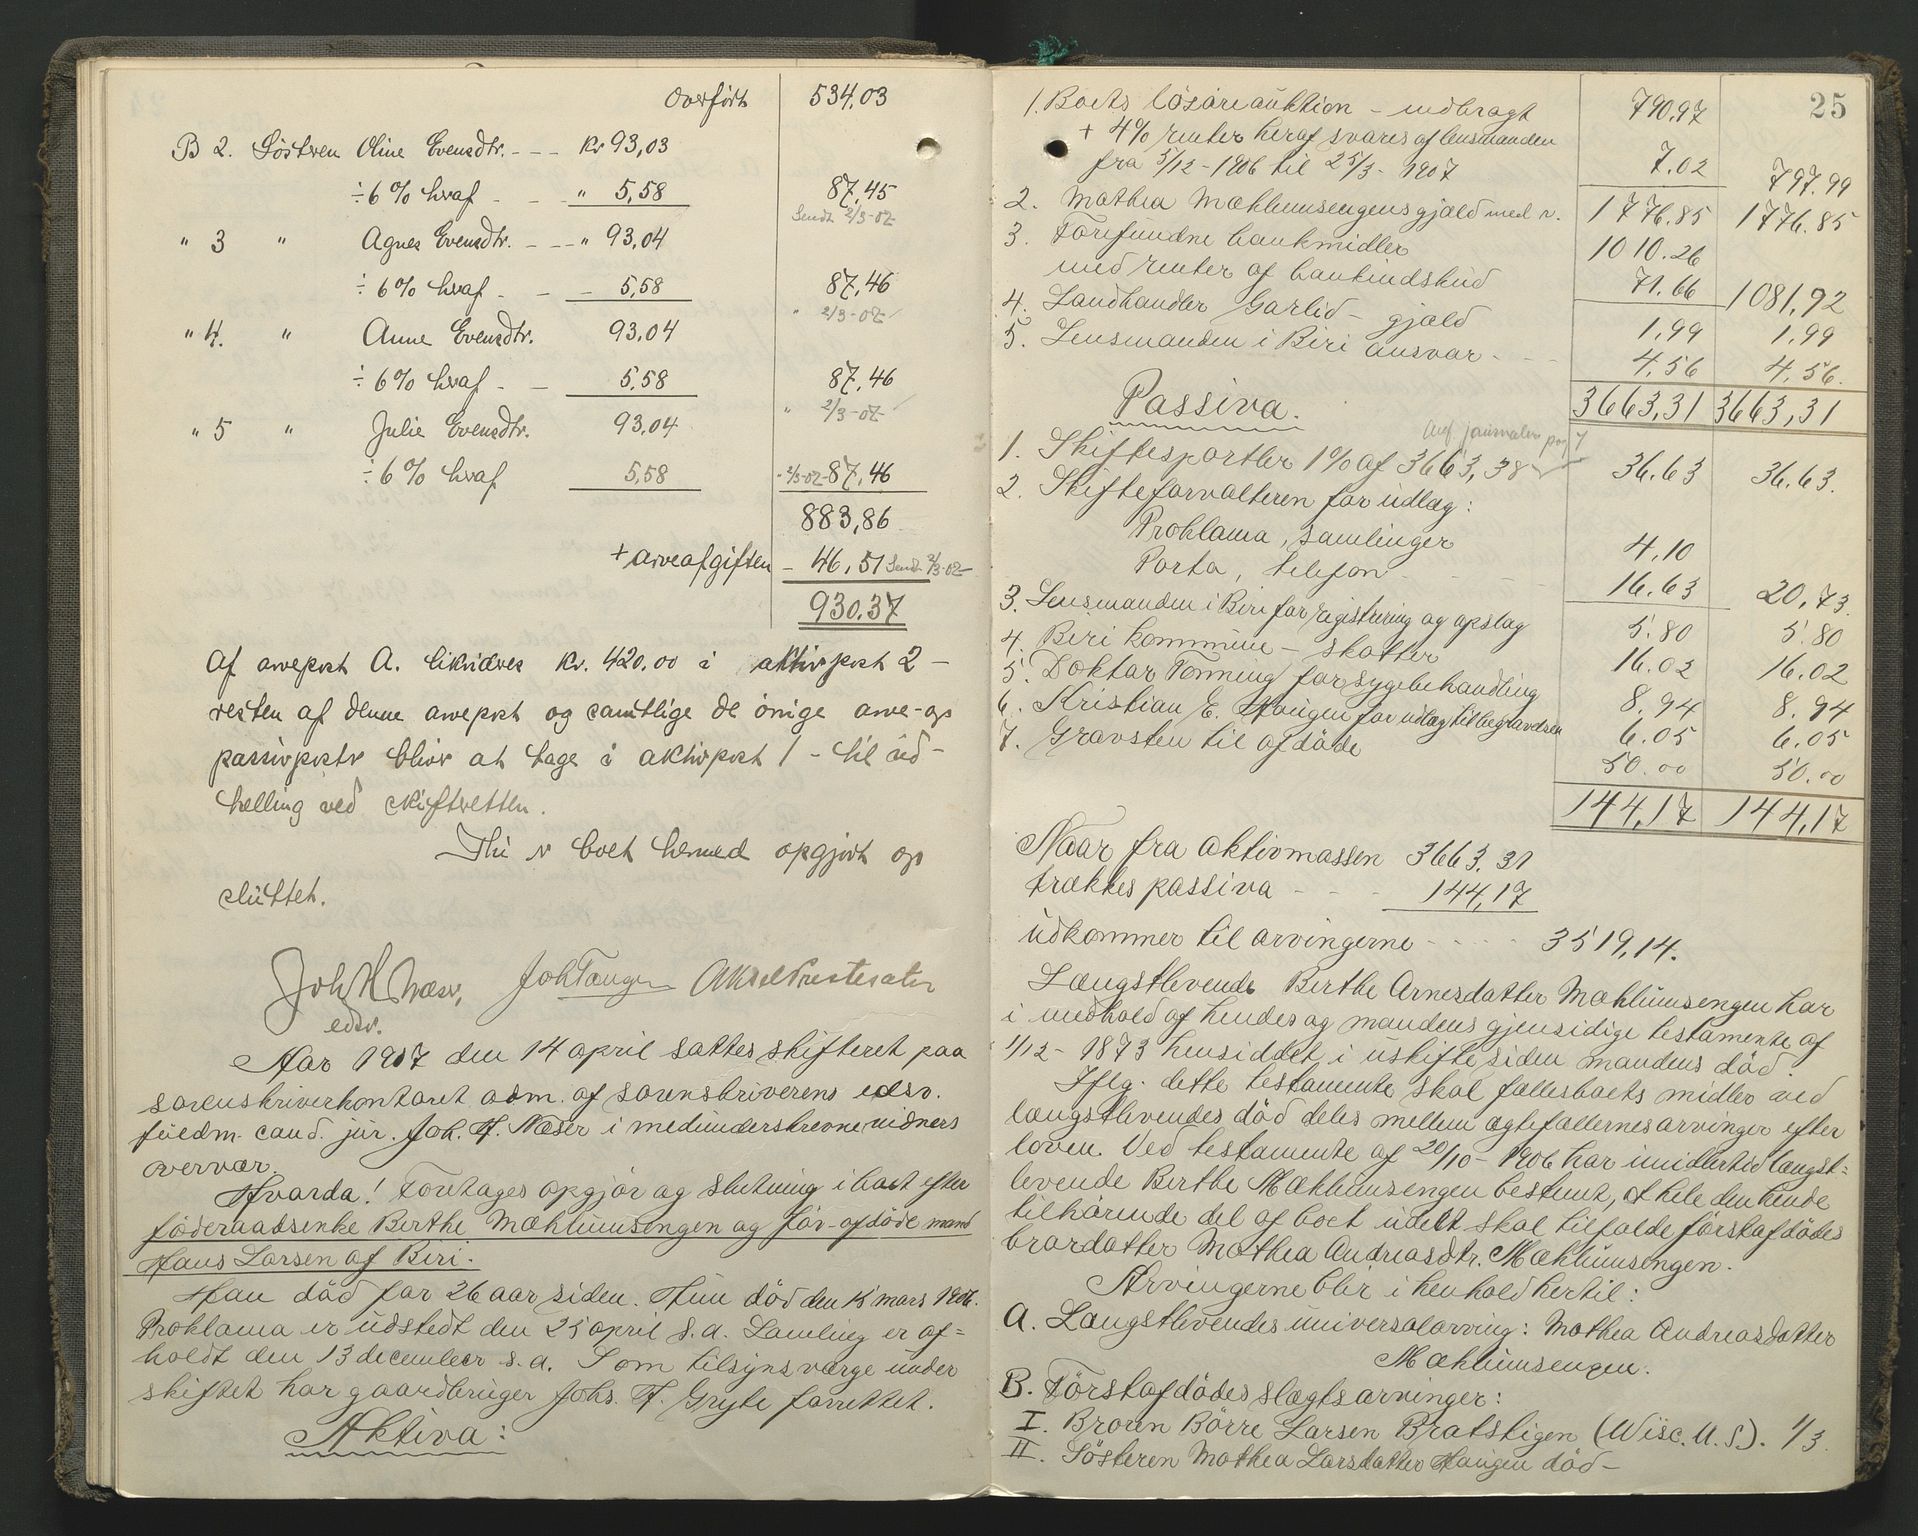 Overført 534,03
B 2. Søsteren Oline Evensdtr. - - - Kr 93,03
÷ 6% heraf - - " 5,58 87,45
Sendt 2/3-07
" 3 " Agnes Evensdtr. - - - " 93,04
÷ 6% heraf - - - 5,58 87,46
" 2/3-07
" 4. " Anne Evensdtr. 93,04
÷ 6% heraf - - 5,58 87,46
" 2/3-07
" 5 " Julie Evensdtr. 93,04
÷ 6% heraf 5,58 " 2/3-07 87,46
883,86
+ arveafgiften - 46,51 Sendt 2/3-07
930.37
Af arvepost A. likvideres kr. 420.00 i aktivpost 2 -
resten af denne arvepost og samtlige de øvrige arve- og
passivposter bliver at tage i aktivpost 1 - til ud-
belling ved skifteretten.
Thi er boet hermed opgjort og
sluttet.
Joh H Næser, Joh Tangen Aksel Prestesæter
edsv.
Aar 1907 den 14 april sattes skifteret paa
sorenskriverkontoret adm. af sorenskriverens edsv.
fuldm. cand. jur. Joh. H. Næser i medunderskrevne vidners
overvær.
Hvorda! Foretages opgjør og slutning i boet efter
føderaadsenke Berthe Mæhlumsengen og før-afdøde mand
Hans Larsen af Biri.
Han død for 26 aar siden. Hun død den 15 mars 1906.
Proklama er udstedt den 25 april s.a. Samling er af=
holdt den 13 december s.a. Som tilsynsværge under
skiftet har gaardbruger Johs. H. Gryte forrettet.
Aktiva:
25
1. Boets løsøreauktion - indbragt 790.97
+ 4% renter heraf svares af lensmanden
fra 5/12-1906 til 25/3-1907 7.02 797.99
2. Mathea Mæhlumsengens gjæld med r. 1776.85 1776.85
3. Forefundne bankmidler 1010.26
med renter af bankindskud 71.66 1081,92
4. Landhandler Garlid - gjæld 1,99 1.99
5. Lensmanden i Biri ansvar - - - 4,56 4,56.
3663,31 3663,31
Passiva.
Anf journalen pag 7
1. Skiftesportler 1% af 3663,38 36.63 36.63.
2. Skifteforvalteren for udlæg:
Proklama, samlinger 4,10
Porto, telefon - - - 16.63 20,73.
3. Lensmanden i Biri for registrering og opslag 5.80 5.80
4. Biri kommune - skatter 16.02 16.02
5. Doktor Tonning for sygebehandling 8,94 8,94
6. Kristian E. Haugen for udlæg til begravelsen 6.05 6.05
7. Gravsten til afdøde 50.00 50.00
144,17 144,17
Naar fra aktivmassen 3663,31
trækkes passiva - - - 144,17
udkommer til arvingerne - - - - 3519,14.
Længstlevende Berthe Arnesdatter Mæhlumsengen har
i medhold af hendes og mandens gjensidige testamente af
1/12-1873 hensiddet i uskifte siden mandens død.
Iflg. dette testamente skal fællesboets midler ved
længstlevendes død deles mellem ægtefællernes arvinger efter
loven. Ved testamente af 20/10-1906 har imidlertid længst=
levende Berthe Mæhlumsengen bestemt, at hele den hende
tilhørende del af boet udelt skal tilfalde førstafdødes
brordatter Mathea Andreasdtr. Mæhlumsengen.
Arvingerne blir i henhold hertil:
A. Længstlevendes universalarving: Mathea Andreasdatter
Mæhlumsengen.
B. Førstafdødes slægtsarvinger:
I. Broren Børre Larsen Bratstigen (Wisc. U.S.). 1/3.
II. Søsteren Mathea Larsdatter Haugen død -